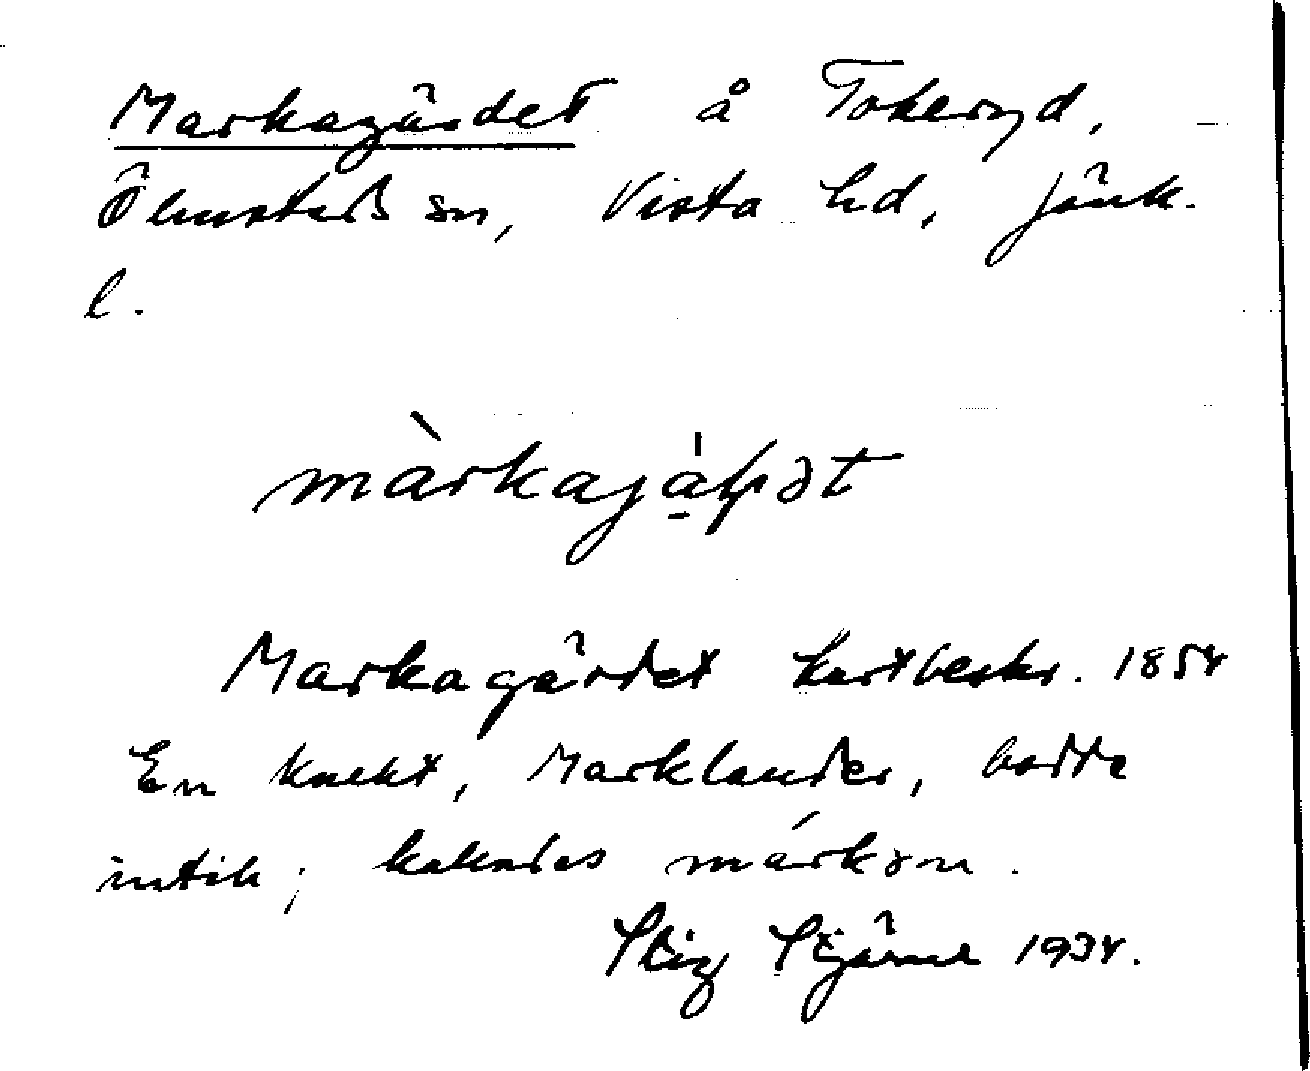 Markagärdet å Tokeryd,
Ölmstads sn, Vista hd, Jönk.
l.
màrkajáḷət
Markagärdet kartbeskr. 1854
En knekt, Marklander, bodde
intill; kallades márkən.
Stig Stjärne 1934.